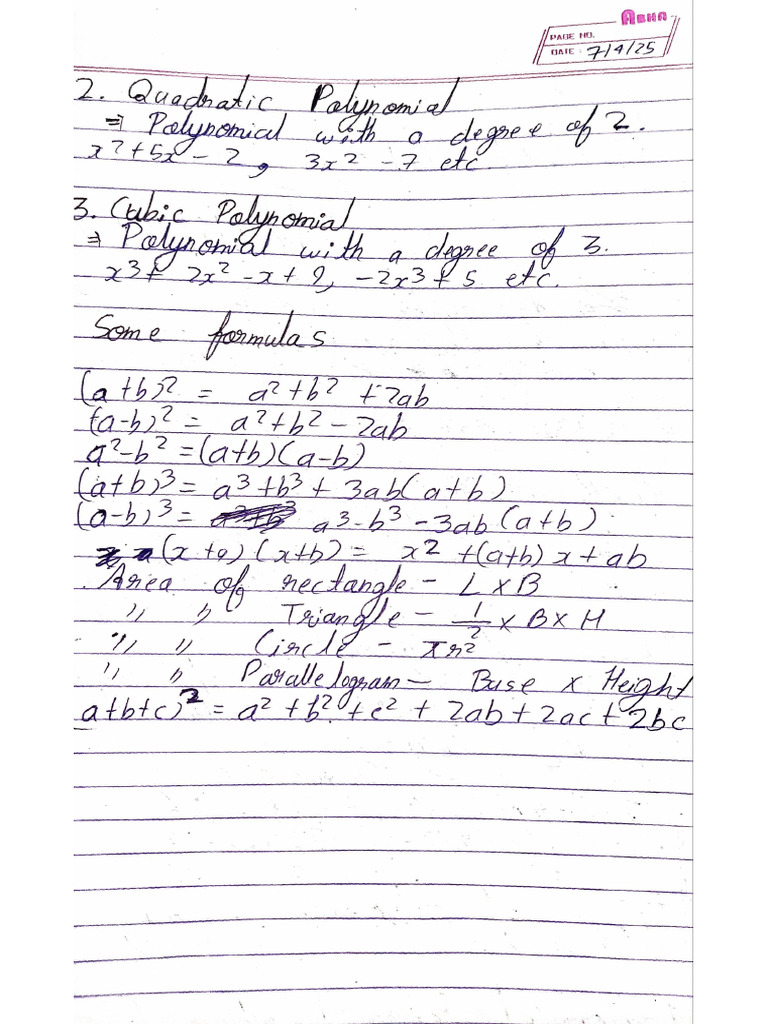 ABHA
PAGE NO.
DATE: 7/4/25
2. Quadratic Polynomial
⇒ Polynomial with a degree of 2.
x² + 5x - 2, 3x² - 7 etc
3. Cubic Polynomial
⇒ Polynomial with a degree of 3.
x³ + 2x² - x + 9, -2x³ + 5 etc.
Some formulas
(a+b)² = a² + b² + 2ab
(a-b)² = a² + b² - 2ab
a² - b² = (a+b)(a-b)
(a+b)³ = a³ + b³ + 3ab(a+b)
(a-b)³ = a³ - b³ - 3ab(a+b)
(x+a)(x+b) = x² + (a+b)x + ab
Area of rectangle - L × B
" " Triangle - 1/2 × B × H
" " Circle - πr²
" " Parallelogram - Base × Height
a+b+c)² = a² + b² + c² + 2ab + 2ac + 2bc